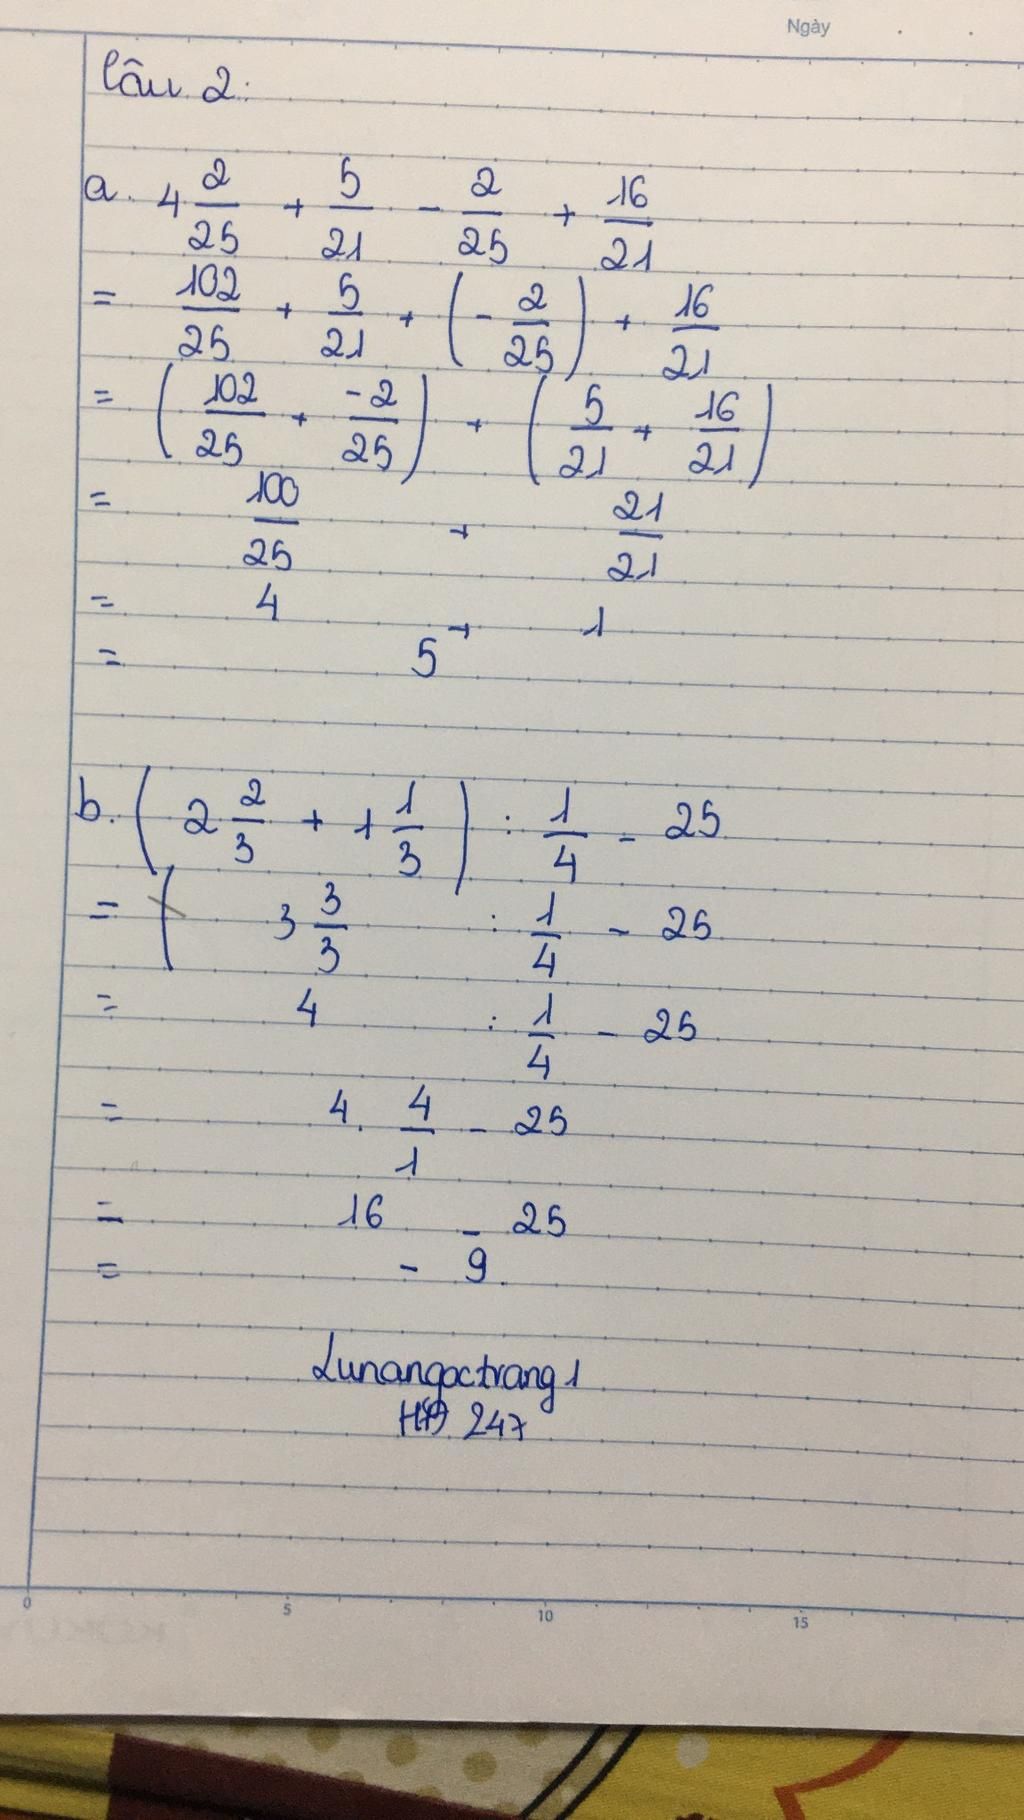 Ngày
Câu 2:
a. 4 2/25 + 5/21 - 2/25 + 16/21
= 102/25 + 5/21 + (- 2/25) + 16/21
= (102/25 + -2/25) + (5/21 + 16/21)
= 100/25 + 21/21
= 4 + 1
= 5
b. (2 2/3 + 1 1/3) : 1/4 - 25
= ( 3 3/3 : 1/4 - 25
= 4 : 1/4 - 25
= 4. 4/1 - 25
= 16 - 25
= - 9.
Lunangoctrang1
247
0 5 10 15